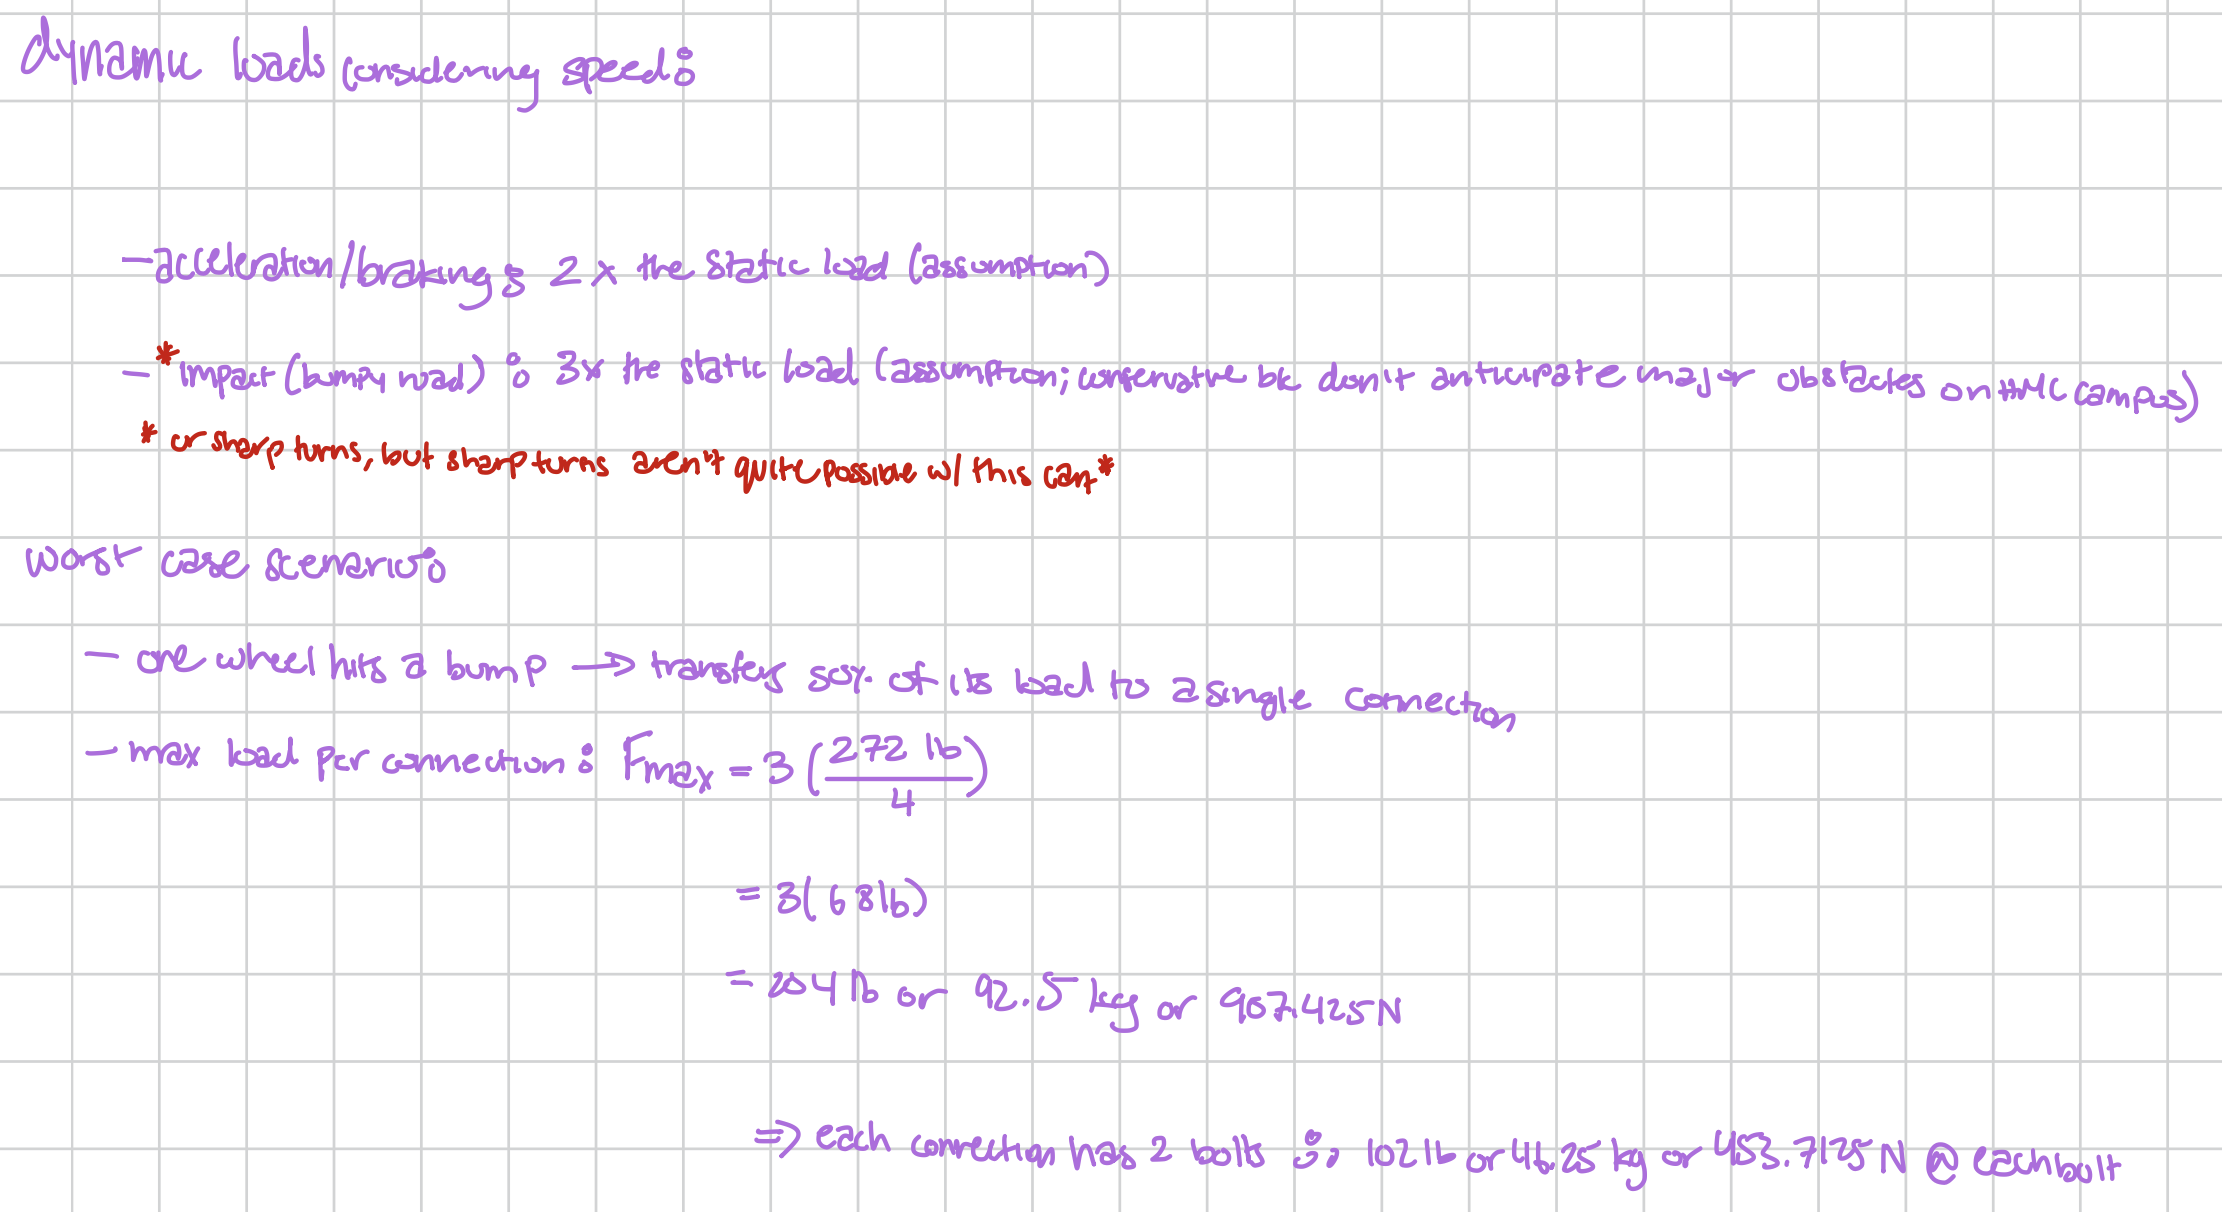 dynamic loads considering speed:
- acceleration/braking: 2x the static load (assumption)
* - impact (bumpy road): 3x the static load (assumption; conservative bc don't anticipate major obstacles on HMC campus)
* or sharp turns, but sharp turns aren't quite possible w/ this cart *
worst case scenario:
- one wheel hits a bump → transfers 50% of its load to a single connection
- max load per connection: Fmax = 3 (272 lb / 4)
= 3(68 lb)
= 204 lb or 92.5 kg or 907.425 N
⇒ each connection has 2 bolts ∴ 102 lb or 46.25 kg or 453.7125 N @ each bolt